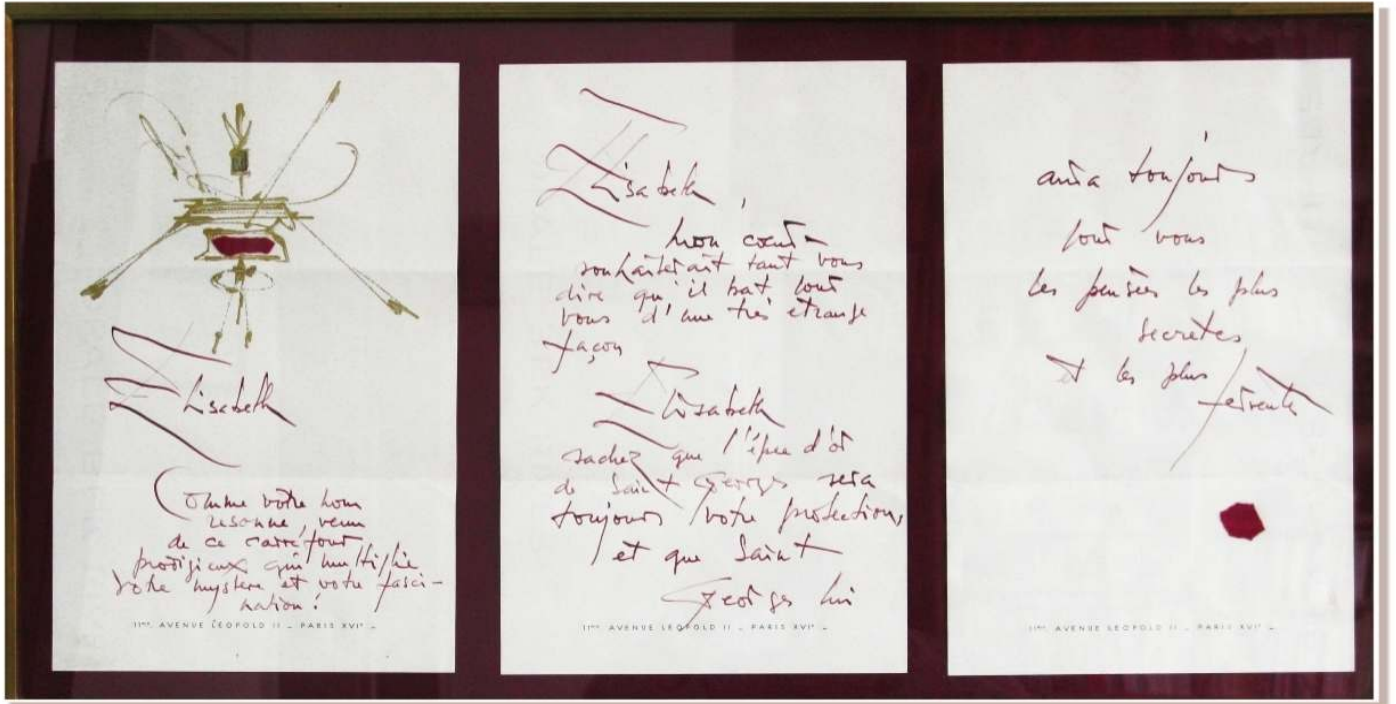 Elisabeth
Comme votre nom
résonne, venu
de ce carrefour
prodigieux qui multiplie
votre mystère et votre fasci-
nation !
11BIS AVENUE LEOPOLD II _ PARIS XVIE _
Elisabeth,
mon cœur
souhaiterait tant vous
dire qu'il bat pour
vous d'une très étrange
façon
Elisabeth
sachez que l'épée d'or
de Saint Georges sera
toujours votre protection,
et que Saint
Georges lui
11BIS AVENUE LEOPOLD II _ PARIS XVIE _
aura toujours
pour vous
les pensées les plus
secrètes
et les plus
ferventes
11BIS AVENUE LEOPOLD II _ PARIS XVIE _